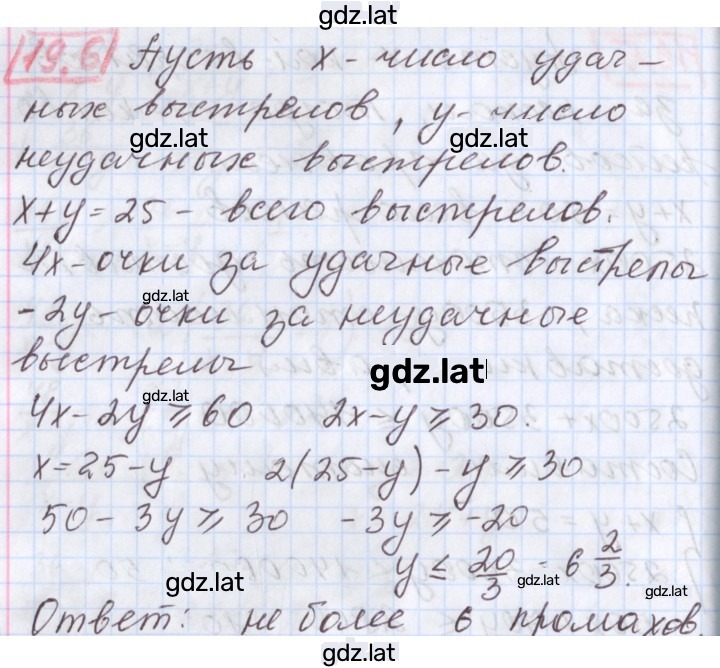 gdz.lat
19.6 Пусть x - число удач-
ных выстрелов, y - число
gdz.lat
gdz.lat
неудачных выстрелов.
x+y=25 - всего выстрелов.
gdz.lat
4x - очки за удачные выстрелы
gdz.lat
-2y - очки за неудачные
выстрелы
gdz.lat
gdz.lat
4x-2y⩾60 2x-y⩾30.
x=25-y 2(25-y)-y⩾30
50-3y⩾30 -3y⩾-20
y≤20/3=6 2/3.
gdz.lat
gdz.lat
gdz.lat
Ответ: не более 6 промахов.
gdz.lat